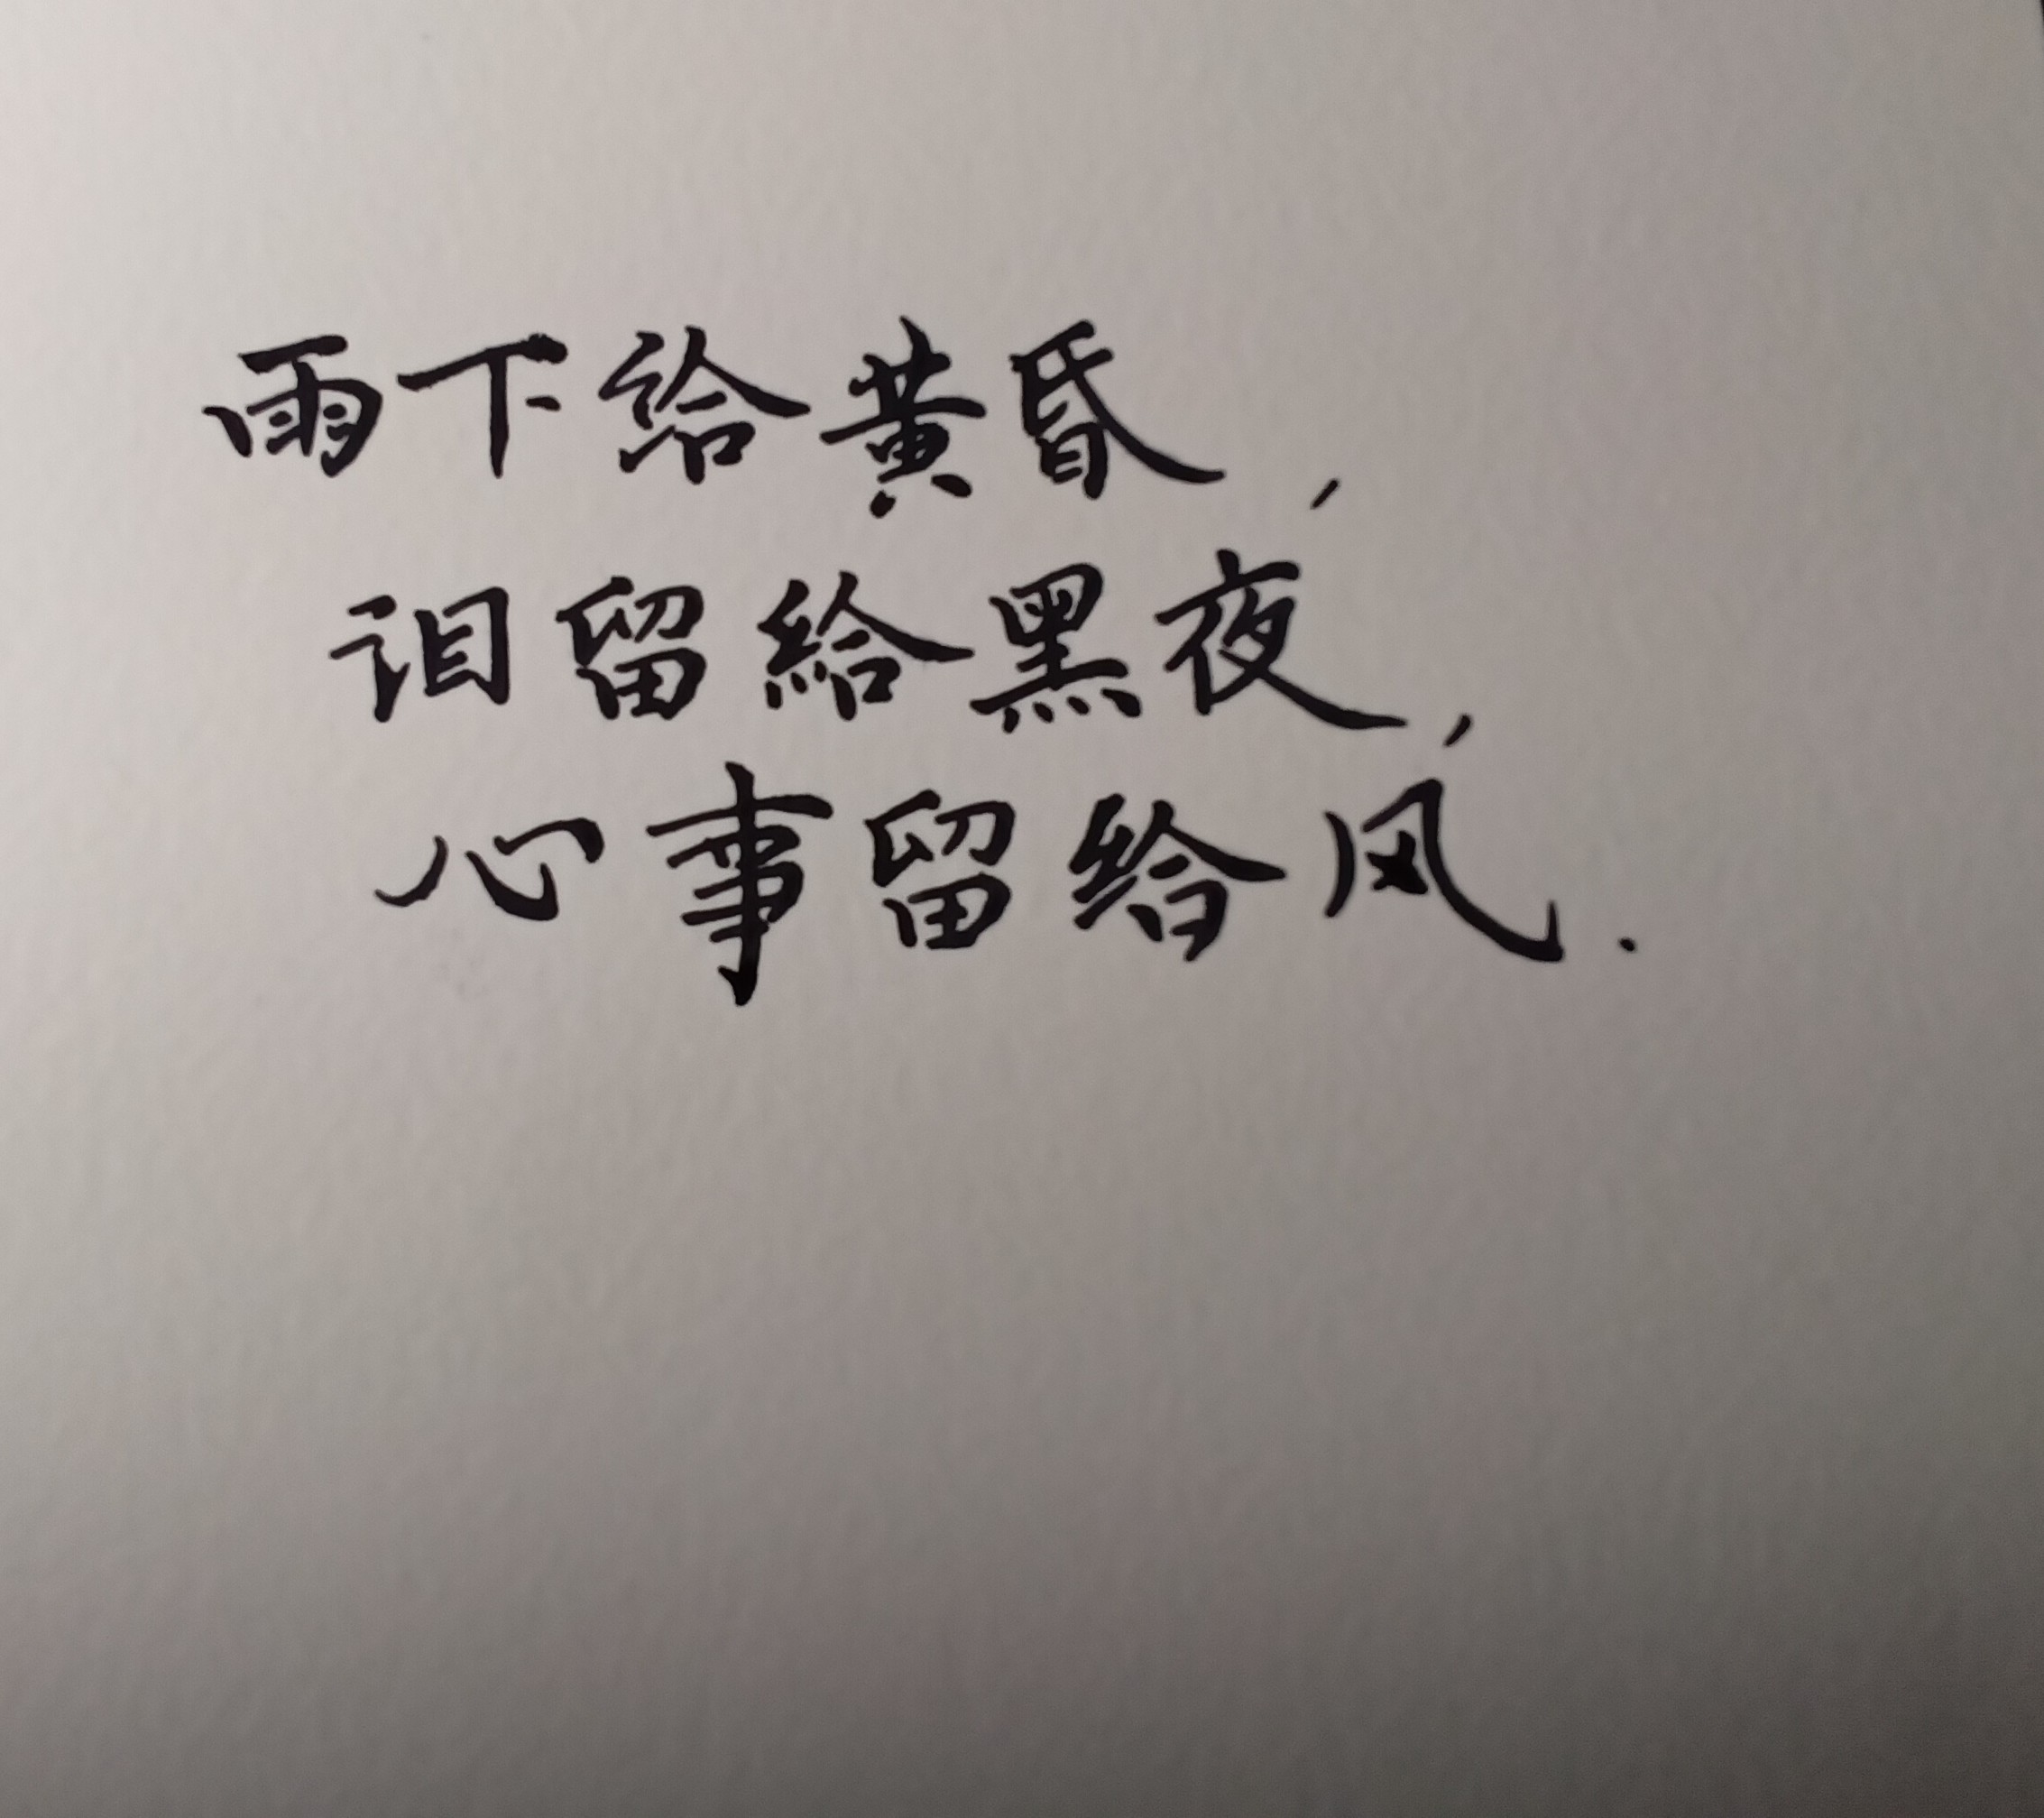 雨下给黄昏，
泪留给黑夜，
心事留给风.